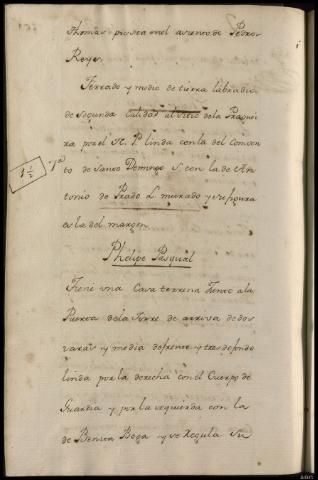 Thomas puesta en el asiento de Pedro
Reyes
Ferrado y medio de tierra labradio
de segunda Calidad al Sitio de la
ra por el N. P. linda con la del Conven
to de Santo Domingo S. con la de An
tonio de Prado L. murado y su figura
es la del margen
1 1/2
Phelipe Pasqual
Tiene una Casa terrena frente a la
Puerta de la Torre de arriva de dos
varas y media de frente y tres de fondo
linda por la derecha con el Cuerpo de
Guardia y por la izquierda con la
de Benita Boga y se Regula su